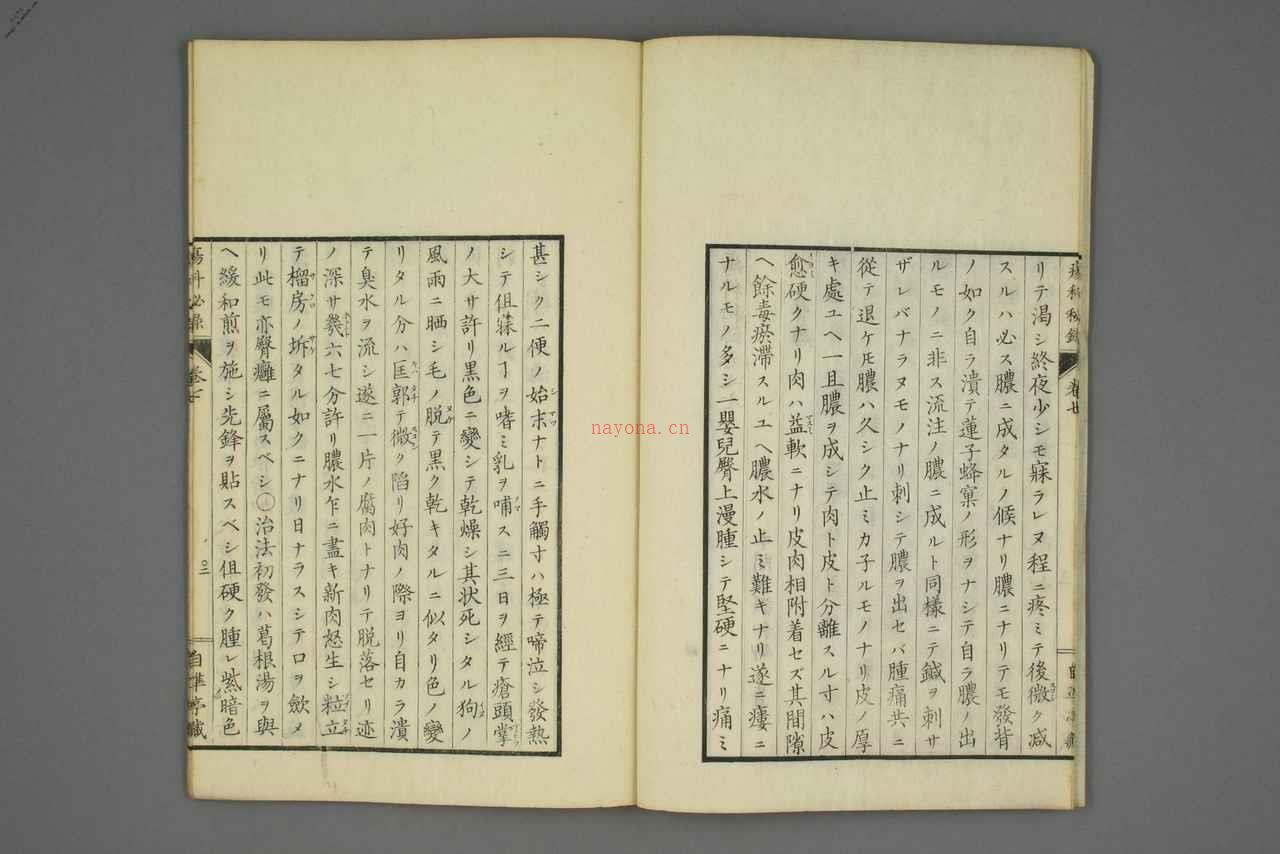 瘍科秘録 卷七
リテ渇シ終夜少シモ寐ラレヌ程ニ疼ミテ後微ク减
スルハ必ス膿ニ成タルノ候ナリ膿ニナリテモ發背
ノ如ク自ラ潰テ蓮子蜂窠ノ形ヲナシテ自ラ膿ノ出
ルモノニ非ス流注ノ膿ニ成ルト同樣ニテ鍼ヲ刺サ
ザレバナラヌモノナリ刺シテ膿ヲ出セバ腫痛共ニ
從テ退ケ𪜈膿ハ久シク止ミカ子ルモノナリ皮ノ厚
キ處ユヘ一旦膿ヲ成シテ肉ト皮ト分離スル寸ハ皮
愈硬クナリ肉ハ益軟ニナリ皮肉相附着セズ其間隙
ヘ餘毒瘀滯スルユヘ膿水ノ止ミ難キナリ遂ニ瘻ニ
ナルモノ多シ一嬰兒臀上漫腫シテ堅硬ニナリ痛ミ
甚シク二便ノ始末ナトニ手觸寸ハ極テ啼泣シ發熱
シテ但寐ルヿヲ嗜ミ乳ヲ哺ス二三日ヲ經テ瘡頭掌
ノ大サ許リ黒色ニ變シテ乾燥シ其状死シタル狗ノ
風雨ニ晒シ毛ノ脱テ黒ク乾キタルニ似タリ色ノ變
リタル分ハ匡郭テ微ク陷リ好肉ノ際ヨリ自カラ潰
テ臭水ヲ流シ遂ニ一片ノ腐肉トナリテ脱落セリ迹
ノ深サ䉼六七分許リ膿水乍ニ盡キ新肉怒生シ粒立
テ榴房ノ坼タル如クニナリ日ナラスシテロヲ歛メ
リ此モ亦臀癰ニ屬スベシ○治法初發ハ葛根湯ヲ與
ヘ緩和煎ヲ施シ先鋒ヲ貼スベシ但硬ク腫レ紫暗色
卷七
nayona.cn